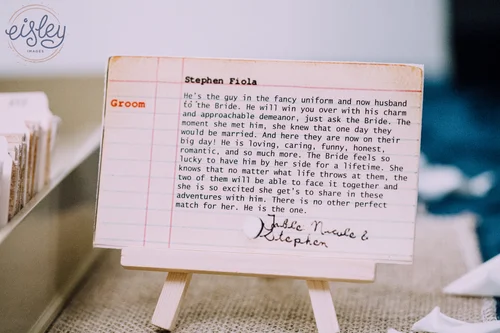 eisley
IMAGES
Stephen Fiola
Groom
He's the guy in the fancy uniform and now husband
to the Bride. He will win you over with his charm
and approachable demeanor, just ask the Bride. The
moment she met him, she knew that one day they
would be married. And here they are now on their
big day! He is loving, caring, funny, honest,
romantic, and so much more. The Bride feels so
lucky to have him by her side for a lifetime. She
knows that no matter what life throws at them, the
two of them will be able to face it together and
she is so excited she get's to share in these
adventures with him. There is no other perfect
match for her. He is the one.
Table Nicole &
Stephen